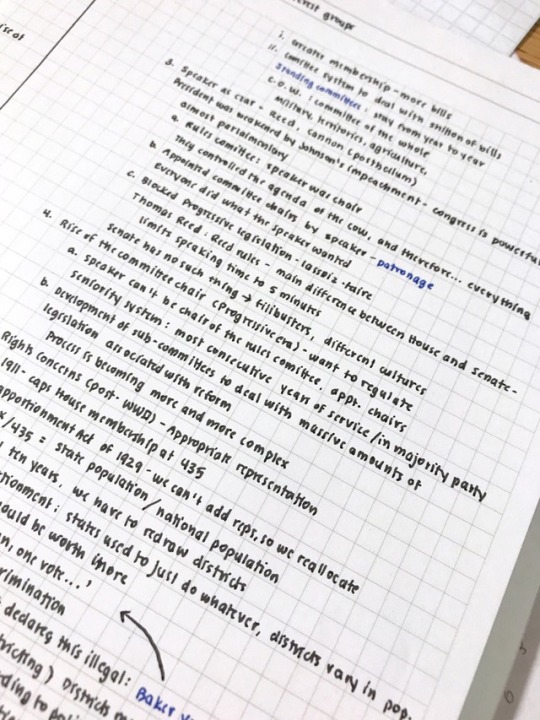 rest groups
i. Greater membership - more bills
ii. Comittee system to deal with shitton of bills
Standing committees: stay from year to year
C.O.W.: committee of the whole
military, territories, agriculture,
3. Speaker as czar - Reed, Cannon (postbellum)
President was weakened by Johnson's impeachment - congress is powerful
almost parliamentary
a. Rules comittee: speaker was chair
They controlled the agenda of the COW, and therefore... everything
b. Appointed committee chairs by speaker - patronage
Everyone did what the speaker wanted
c. Blocked Progressive legislation - laissiz-faire
Thomas Reed: Reed rules - main difference between House and Senate -
limits speaking time to 5 minutes
Senate has no such thing → filibusters, different cultures
4. Rise of the committee chair (Progressive era) - want to regulate
a. Speaker can't be chair of the rules comittee, appt. chairs
Seniority system: most consecutive years of service/in majority party
b. Development of sub-committees to deal with massive amounts of
legislation associated with reform
Process is becoming more and more complex
Rights Concerns (post-WWII) - Appropriate representation
1911 - caps House membership at 435
apportionment Act of 1929 - we can't add reps, so we reallocate
X/435 = state population/national population
ten years, we have to redraw districts
: states used to just do whatever, districts vary in pop.
ould be worth more
n, one vote...'
crimination
declares this illegal: Baker v
tricting) Districts